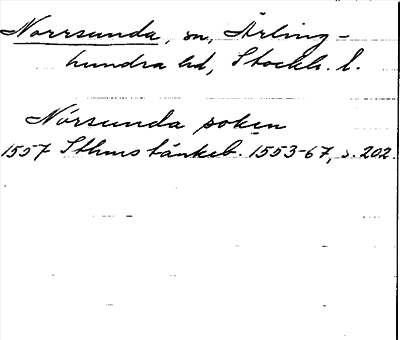 Norrsunda, sn, Ärling-
hundra hd, Stockh. l.
Norsunda soken
1557 Sthms tänkeb. 1553-67, s. 202.